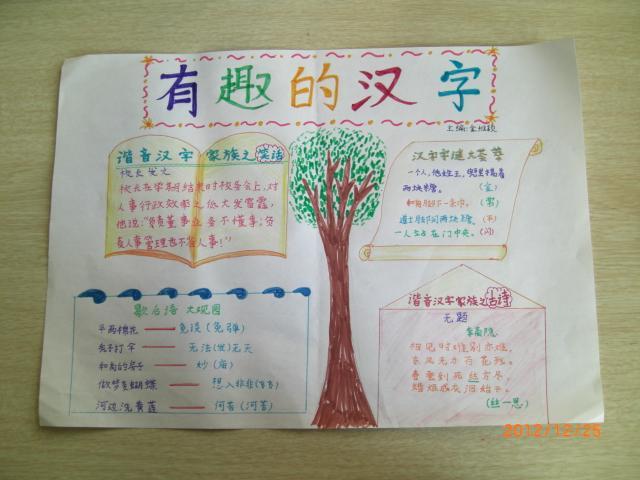 有趣的汉字
主编:金
谐音汉字家族之笑话
校长发之
校长在学期结束时校务会上,对
人事行政效率之低大发雷霆,
他说:"负责董事业务不懂事,负
责人事管理也不省人事!"
汉字字谜大荟萃
一个人,他姓王,兜里揣着
两块糖。(金)
和尚脚下一条巾。(常)
道士腰间两块糖。(平)
一人站在门中央。(闪)
歇后语大观园
平两棉花——免谈(免弹)
秃子打伞——无法(发)无天
和尚的房子——妙(庙)
做梦变蝴蝶——想入非非(飞飞)
河边洗黄莲——何苦(河苦)
谐音汉字家族之古诗
无题
李商隐
相见时难别亦难,
东风无力百花残。
春蚕到死丝方尽,
蜡炬成灰泪始干。
(丝—思)
2012/12/25